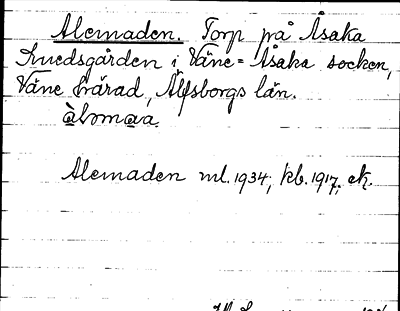 Alemaden. Torp på Åsaka
Knedsgården i Väne-Åsaka socken,
Väne härad, Älfsborgs län.
àlɔmaa.
Alemaden ml. 1934, kb. 1917, ek.